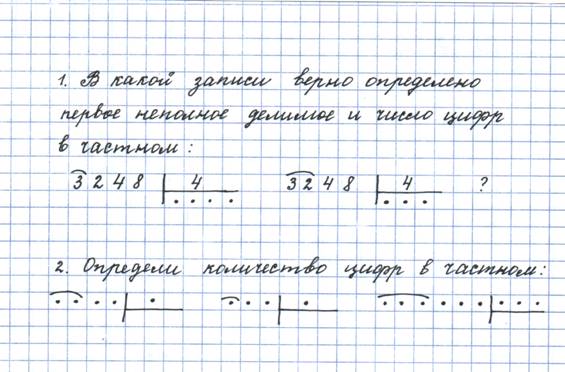 1. В какой записи верно определено
первое неполное делимое и число цифр
в частном:
3 2 4 8 | 4 3 2 4 8 | 4 ?
. . . . . . .
2. Определи количество цифр в частном:
. . . . | . . . . | . . . . . . . | . . .